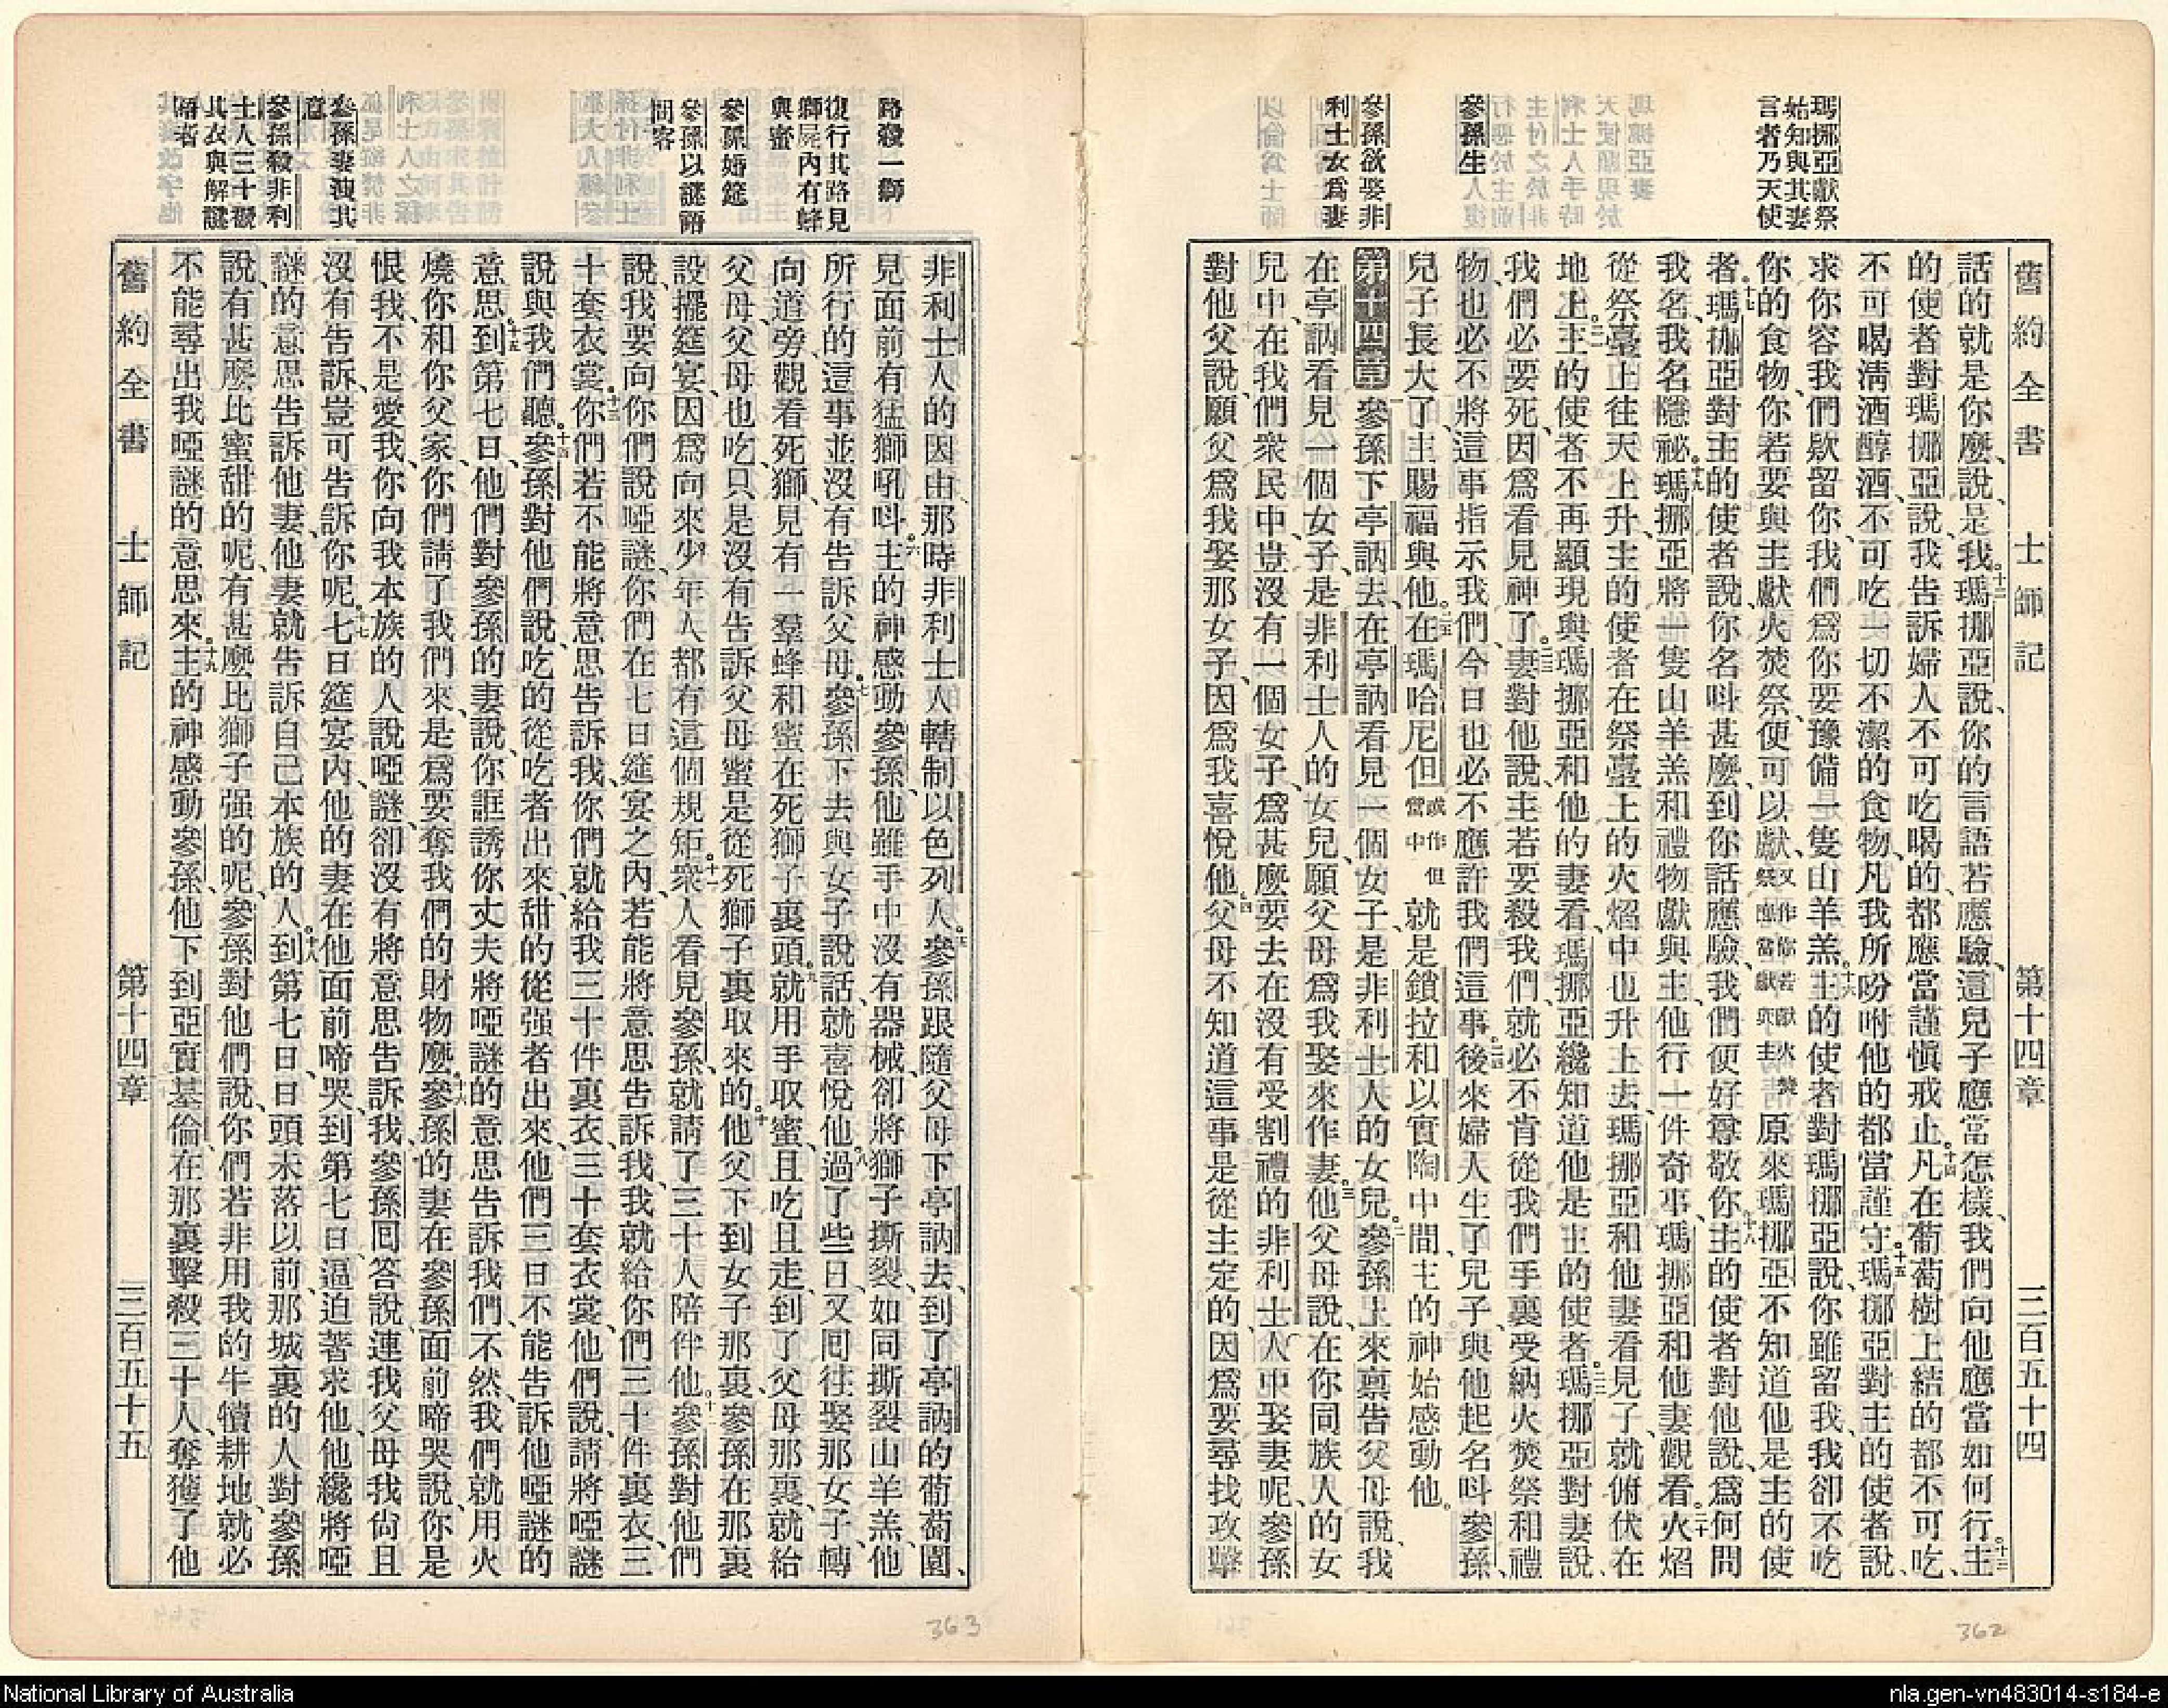 舊約全書 士師記 第十四章 三百五十四
瑪挪亞獻祭
始知與其妻
言者乃天使
參孫生
參孫欲娶非
利士女爲妻
話的就是你麼、說、是我。十二瑪挪亞說、你的言語若應驗、這兒子應當怎樣、我們向他應當如何行。十三主
的使者對瑪挪亞說、我告訴婦人不可吃喝的、都應當謹愼戒止。十四凡在葡萄樹上結的都不可吃、
不可喝淸酒醇酒、不可吃一切不潔的食物、凡我所吩咐他的都當謹守。十五瑪挪亞對主的使者說、
求你容我們款留你、我們爲你要豫備一隻山羊羔。十六主的使者對瑪挪亞說、你雖留我、我卻不吃
你的食物、你若要與主獻火焚祭、便可以獻、祭又作你若獻火焚祭應當獻與主原來瑪挪亞不知道他是主的使
者。十七瑪挪亞對主的使者說、你名呌甚麼、到你話應驗、我們便好尊敬你。十八主的使者對他說、爲何問
我名、我名隱祕。十九瑪挪亞將一隻山羊羔和禮物獻與主、他行一件奇事、瑪挪亞和他妻觀看。二十火焰
從祭臺上往天上升、主的使者在祭臺上的火焰中也升上去、瑪挪亞和他妻看見了、就俯伏在
地上。二一主的使者不再顯現與瑪挪亞和他的妻看、瑪挪亞纔知道他是主的使者。二二瑪挪亞對妻說、
我們必要死、因爲看見神了。二三妻對他說、主若要殺我們、就必不肯從我們手裏受納火焚祭和禮
物、也必不將這事指示我們、今日也必不應許我們這事。二四後來婦人生了兒子、與他起名呌參孫、
兒子長大了、主賜福與他。二五在瑪哈尼但或作但營中就是鎖拉和以實陶中間、主的神始感動他。
第十四章 一參孫下亭訥去、在亭訥看見一個女子、是非利士人的女兒。二參孫上來稟告父母說、我
在亭訥看見一個女子、是非利士人的女兒、願父母爲我娶來作妻。三他父母說、在你同族人的女
兒中、在我們衆民中、豈沒有一個女子、爲甚麼要去在沒有受割禮的非利士人中娶妻呢、參孫
對他父說、願父爲我娶那女子、因爲我喜悅他。四他父母不知道這事是從主定的、因爲要尋找攻擊
362
路殺一獅
復行其路見
獅屍內有蜂
與蜜
參孫婚筵
參孫以謎語
問客
參孫妻洩其
意
參孫殺非利
士人三十褫
其衣與解謎
語者
非利士人的因由、那時非利士人轄制以色列人。五參孫跟隨父母下亭訥去、到了亭訥的葡萄園、
見面前有猛獅吼呌。六主的神感動參孫、他雖手中沒有器械、卻將獅子撕裂、如同撕裂山羊羔、他
所行的這事並沒有告訴父母。七參孫下去與女子說話、就喜悅他。八過了些日、又回往娶那女子、轉
向道旁、觀看死獅、見有一羣蜂和蜜在死獅子裏頭。九就用手取蜜、且吃且走、到了父母那裏、就給
父母、父母也吃、只是沒有告訴父母蜜是從死獅子裏取來的。十他父下到女子那裏、參孫在那裏
設擺筵宴、因爲向來少年人都有這個規矩。十一衆人看見參孫、就請了三十人陪伴他。十二參孫對他們
說、我要向你們說啞謎、你們在七日筵宴之內、若能將意思告訴我、我就給你們三十件裏衣、三
十套衣裳。十三你們若不能將意思告訴我、你們就給我三十件裏衣、三十套衣裳、他們說、請將啞謎
說與我們聽。十四參孫對他們說、吃的從吃者出來、甜的從强者出來、他們三日不能告訴他啞謎的
意思。十五到第七日、他們對參孫的妻說、你誆誘你丈夫將啞謎的意思告訴我們、不然、我們就用火
燒你和你父家、你們請了我們來、是爲要奪我們的財物麼。十六參孫的妻在參孫面前啼哭說、你是
恨我、不是愛我、你向我本族的人說啞謎、卻沒有將意思告訴我、參孫回答說、連我父母我尙且
沒有告訴、豈可告訴你呢。十七七日筵宴內、他的妻在他面前啼哭、到第七日、逼迫著求他、他纔將啞
謎的意思告訴他妻、他妻就告訴自己本族的人。十八到第七日、日頭未落以前、那城裏的人對參孫
說、有甚麼比蜜甜的呢、有甚麼比獅子强的呢、參孫對他們說、你們若非用我的牛犢耕地、就必
不能尋出我啞謎的意思來。十九主的神感動參孫、他下到亞實基倫、在那裏擊殺三十人、奪獲了他
舊約全書 士師記 第十四章 三百五十五
363
National Library of Australia
nla.gen-vn483014-s184-e